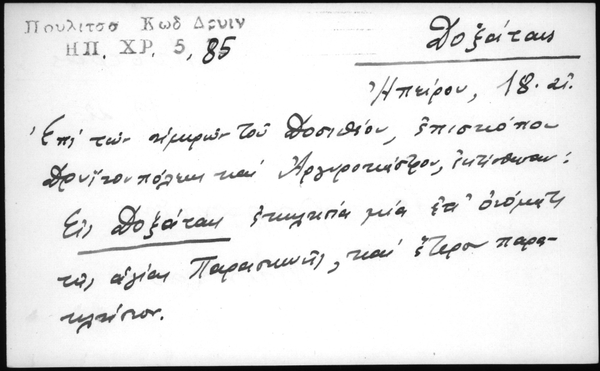 Πουλιτσα Κωδ Δρυιν
ΗΠ. ΧΡ. 5, 85
Δοξάτες
Ἠπείρου, 18. αἰ.
Ἐπί τῶν ἡμερῶν τοῦ Δοσιθέου, ἐπισκόπου
Δρυϊνουπόλεως καί Ἀργυροκάστρου, ἐκτίσθησαν:
Εἰς Δοξάτες ἐκκλησία μία ἐπ' ὀνόματι
τῆς ἁγίας Παρασκευῆς, καί ἕτερον παρε-
κλήσιον.